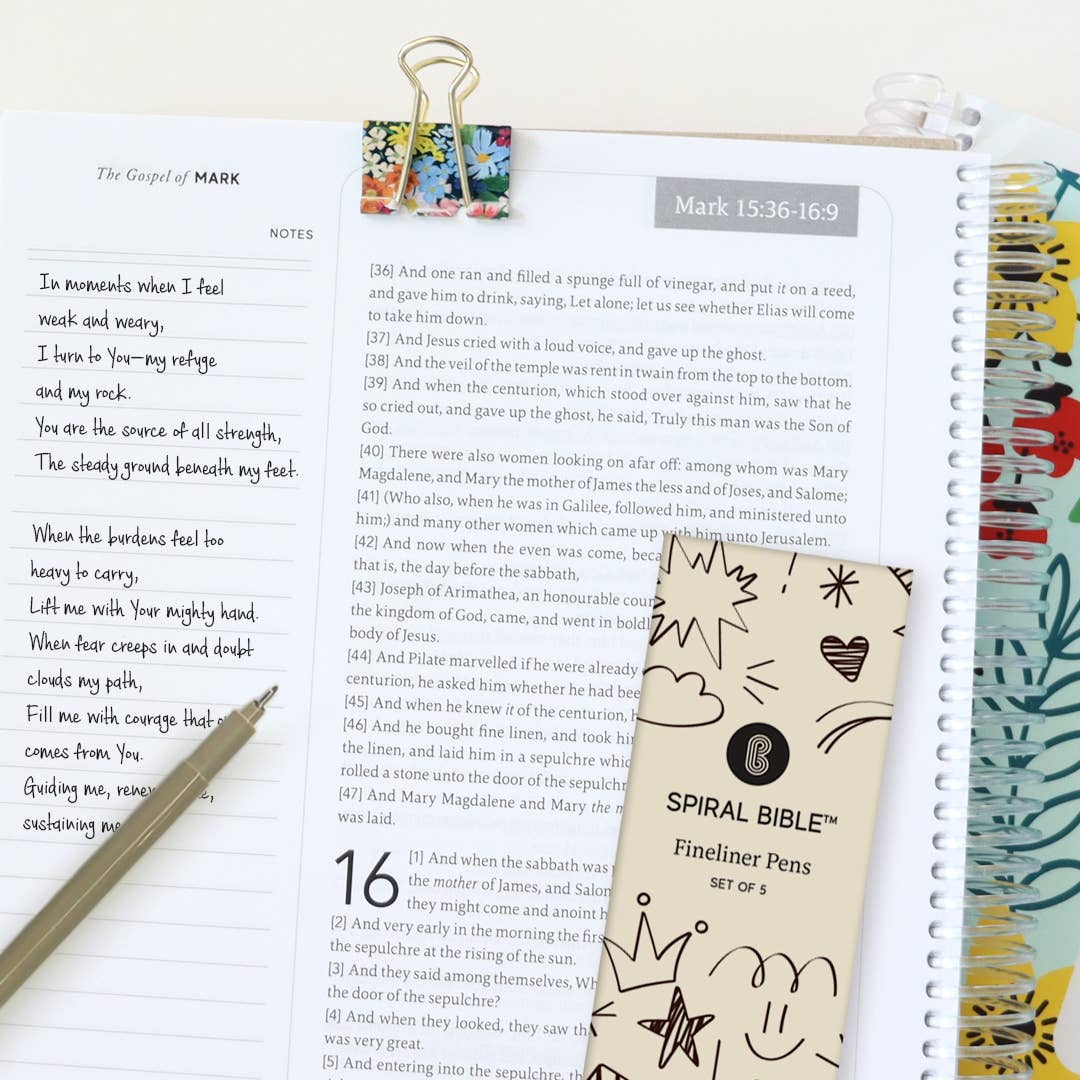 The Gospel of MARK
NOTES
In moments when I feel
weak and weary,
I turn to You—my refuge
and my rock.
You are the source of all strength,
The steady ground beneath my feet.
When the burdens feel too
heavy to carry,
Lift me with Your mighty hand.
When fear creeps in and doubt
clouds my path,
Fill me with courage that
comes from You.
Guiding me,
sustaining me
Mark 15:36-16:9
[36] And one ran and filled a spunge full of vinegar, and put it on a reed,
and gave him to drink, saying, Let alone; let us see whether Elias will come
to take him down.
[37] And Jesus cried with a loud voice, and gave up the ghost.
[38] And the veil of the temple was rent in twain from the top to the bottom.
[39] And when the centurion, which stood over against him, saw that he
so cried out, and gave up the ghost, he said, Truly this man was the Son of
God.
[40] There were also women looking on afar off: among whom was Mary
Magdalene, and Mary the mother of James the less and of Joses, and Salome;
[41] (Who also, when he was in Galilee, followed him, and ministered unto
him;) and many other women which came up with him unto Jerusalem.
[42] And now when the even was come,
that is, the day before the sabbath,
[43] Joseph of Arimathea, an honourable
the kingdom of God, came, and went in
body of Jesus.
[44] And Pilate marvelled if he were already
centurion, he asked him whether he had
[45] And when he knew it of the centurion,
[46] And he bought fine linen, and took
the linen, and laid him in a sepulchre
rolled a stone unto the door of the
[47] And Mary Magdalene and Mary the
was laid.
16
[1] And when the sabbath was
the mother of James, and
they might come and anoint
[2] And very early in the morning the
the sepulchre at the rising of the sun.
[3] And they said among themselves,
the door of the sepulchre?
[4] And when they looked, they saw
was very great.
[5] And entering into the sepulchre,
B
SPIRAL BIBLE™
Fineliner Pens
SET OF 5